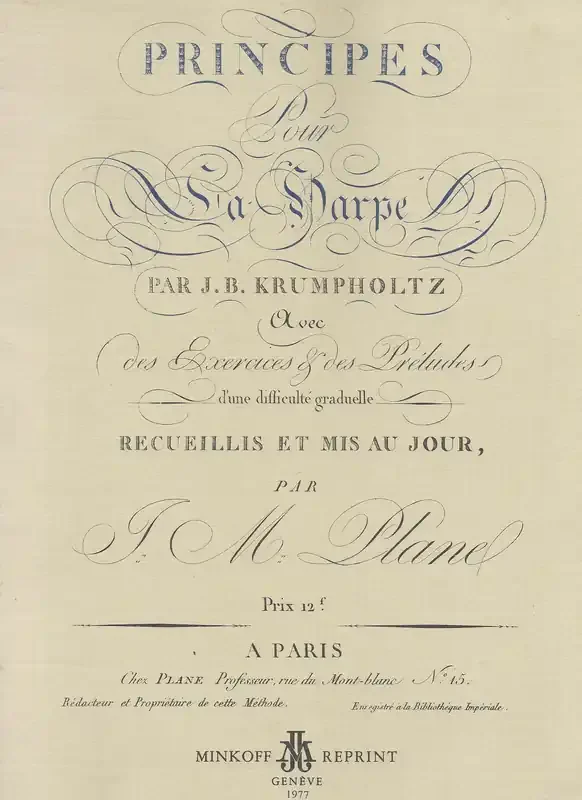 PRINCIPES
Pour
La Harpe
PAR J.B. KRUMPHOLTZ
Avec
des Exercices & des Préludes
d'une difficulté graduelle
RECUEILLIS ET MIS AU JOUR,
PAR
J. M. Plane
Prix 12f.
A PARIS
Chez PLANE Professeur, rue du Mont-blanc No. 15.
Rédacteur et Propriétaire de cette Méthode.
Enregistré à la Bibliothèque Impériale.
MINKOFF JM REPRINT
GENÈVE
1977